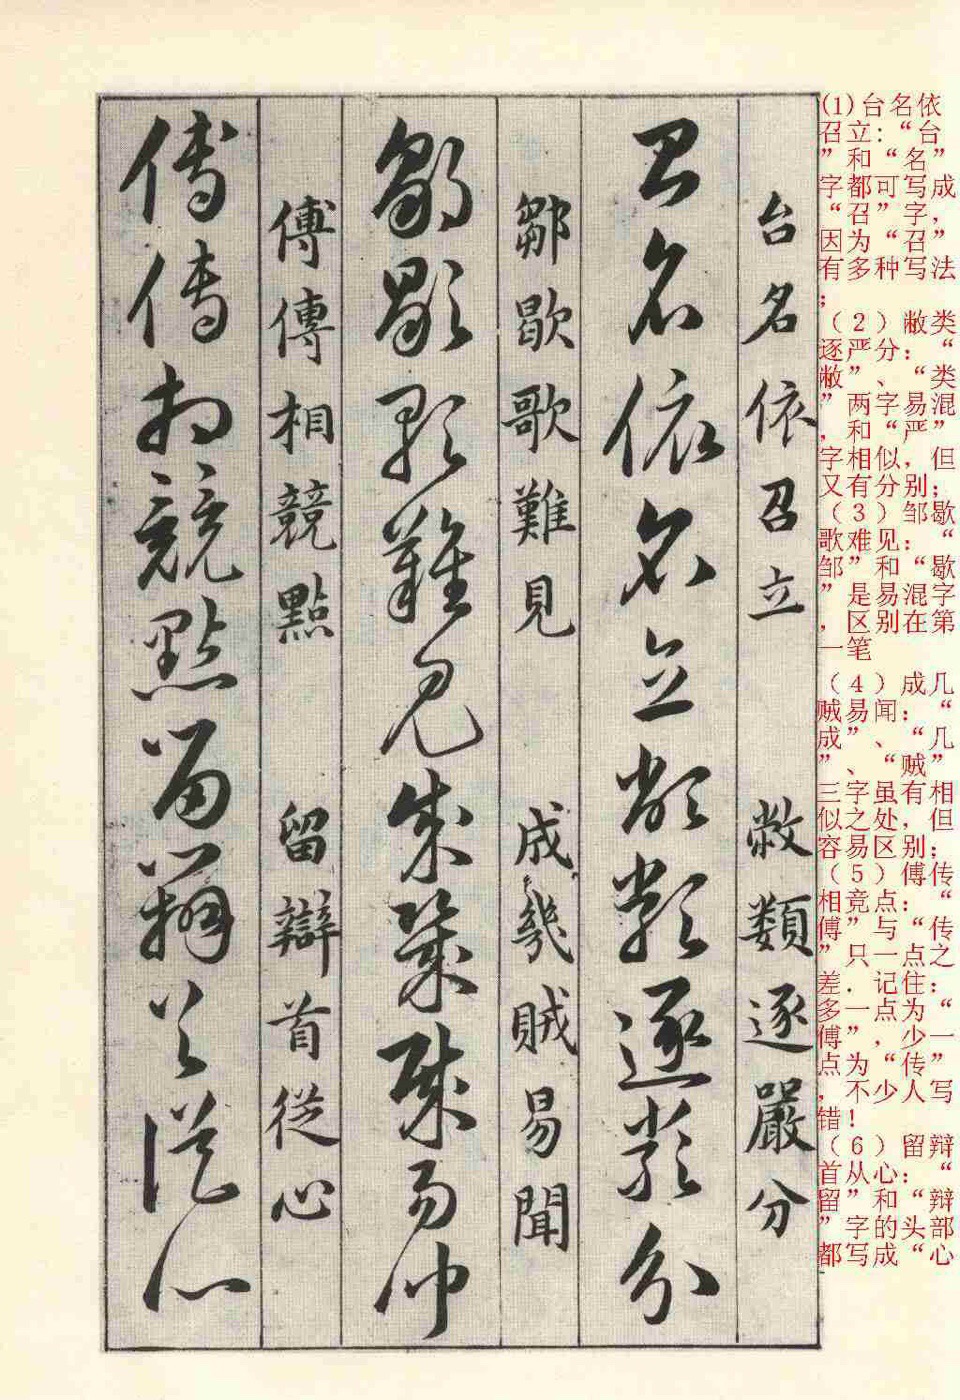 台名依召立 敝類逐嚴分
台名依召立敝類逐嚴分
鄒歇歌難見 成幾賊易聞
鄒歇歌難見成幾賊易聞
傅傳相競點 留辯首從心
傅傳相競點留辯首從心
(1)台名依
召立:“台
”和“名”
字都可写成
“召”字,
因为“召”
有多种写法
;
(2)敝类
逐严分:“
敝”、“类
”两字易混
,和“严”
字相似,但
又有分别;
(3)邹歇
歌难见:“
邹”和“歇
”是易混字
,区别在第
一笔
(4)成几
贼易闻:“
成”、“几
”、“贼”
三字虽有相
似之处,但
容易区别;
(5)傅传
相竞点:“
傅”与“传
”只一点之
差.记住:
多一点为“
傅”,少一
点为“传”
,不少人写
错!
(6)留辩
首从心:“
留”和“辩
”字的头部
都写成“心